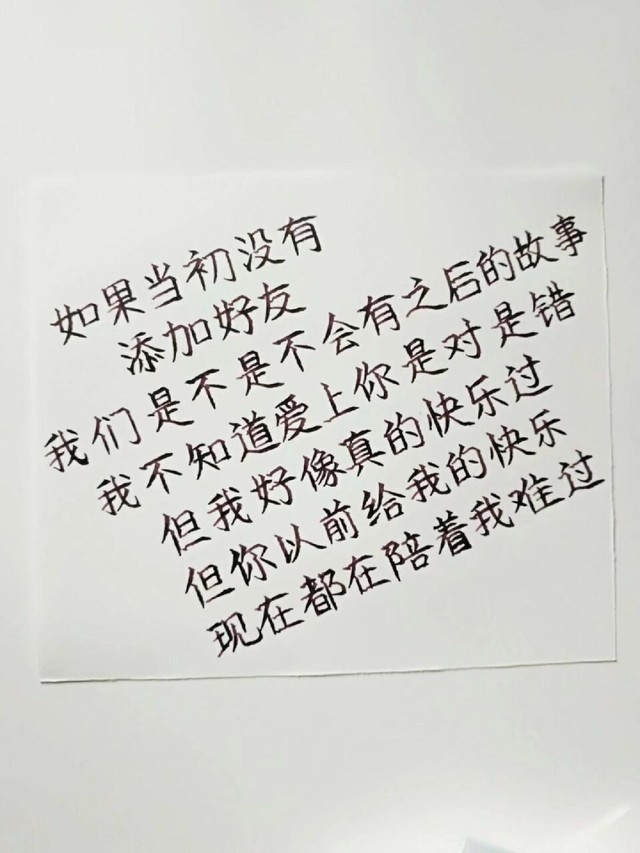 如果当初没有
添加好友
我们是不是不会有之后的故事
我不知道爱上你是对是错
但我好像真的快乐过
但你以前给我的快乐
现在都在陪着我难过